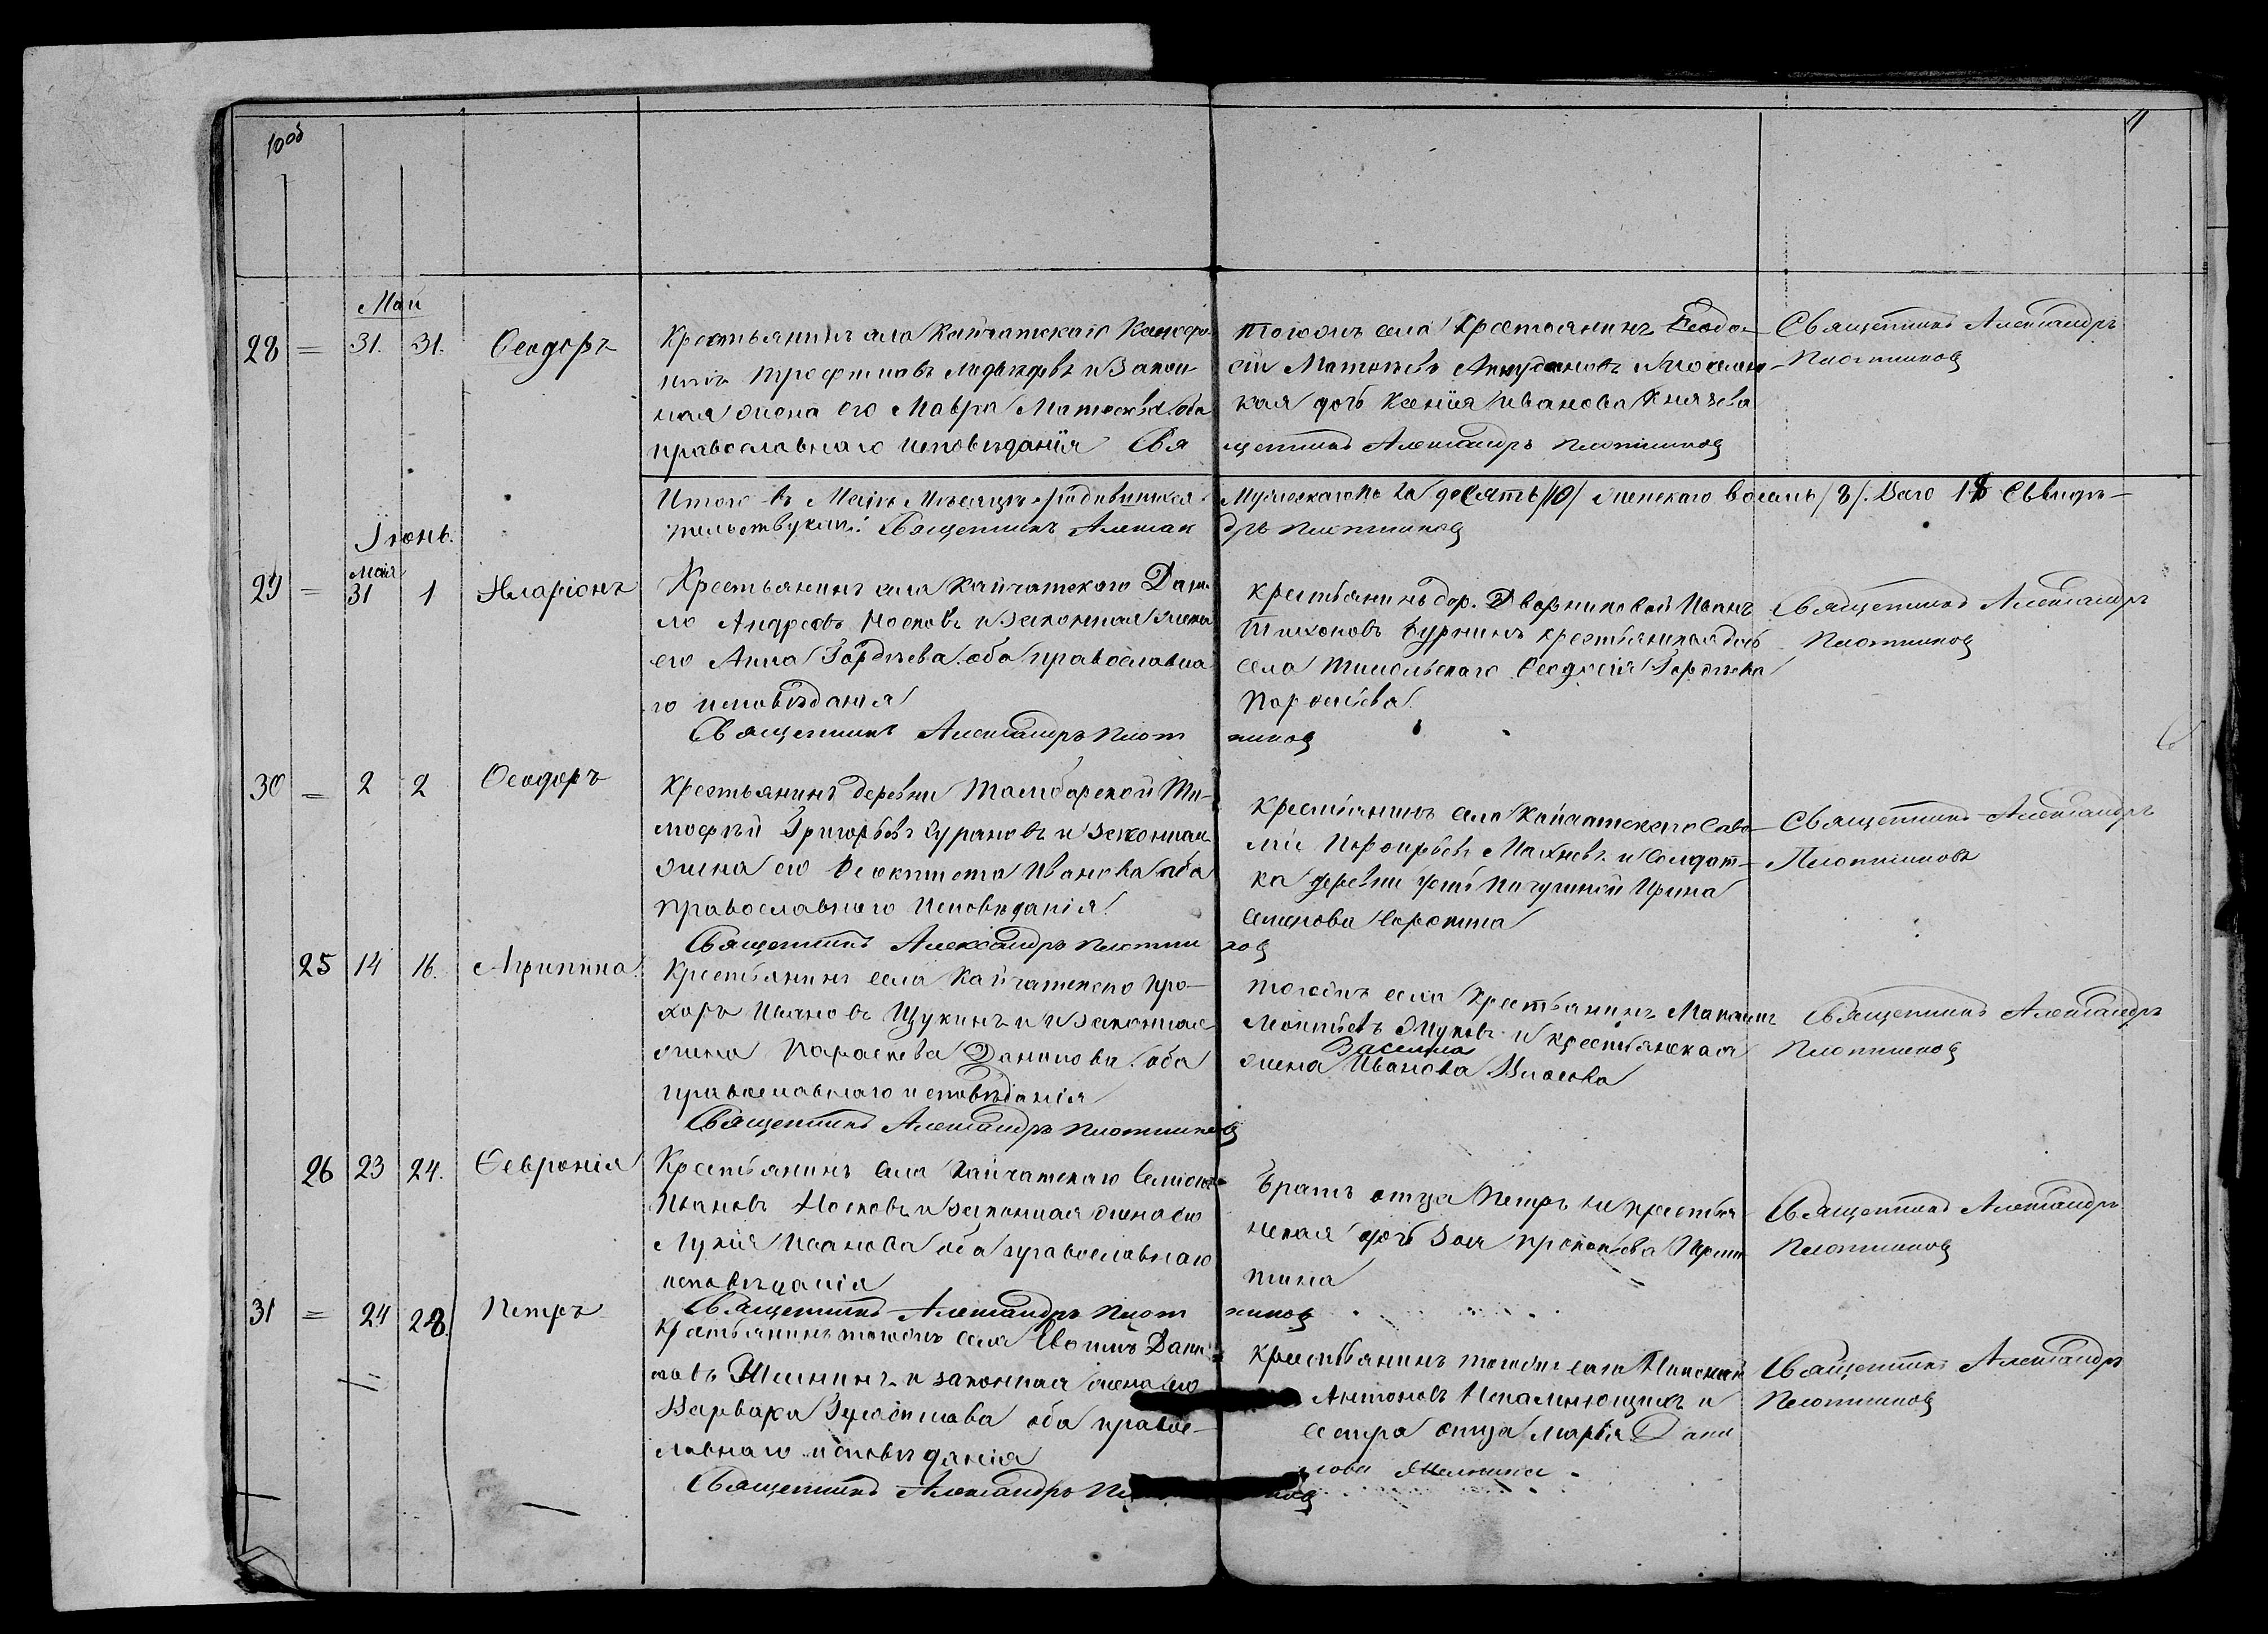 10об
11
Май
28 = 31. 31. Ѳеодоръ
Крестьянинъ села Кайчатскаго
Трофимовъ и закон
ная жена его Мавра Матвеева оба
православнаго исповѣданія Свя
тогожъ села крестьянинъ Ѳеодо-
сій Матвѣевъ и
кая дочь Ксенія Иванова Князева
щенникъ Александръ Плотниковъ
Священникъ Александръ
Плотниковъ
Итого въ Маіѣ Мѣсяцѣ родившихся
Мужескаго пола десять /10/ женскаго восемь /8/. Всего 18 Свидѣ-
тельствуемъ: Священникъ Алексан
дръ Плотниковъ
Іюнь.
мая
29 = 31 1 Иларіонъ
Крестьянинъ села Кайчатскаго Дани-
ло Андреевъ Носковъ и законная жена
его Анна Гордѣева оба православна
го исповѣданія
Священникъ Александръ Плот
крестьянинъ дер. Дворниковой Иванъ
Тихоновъ Бурнинъ крестьянская дочь
села Тисульскаго Ѳеодосія Гордѣева
никовъ
Священникъ Александръ
Плотниковъ
30 = 2 2 Ѳеодоръ
Крестьянинъ деревни Тамбарской Ти-
мофѣй Григорьевъ Гурановъ и законная
жена его Ѳеоктиста Иванова оба
православнаго исповѣданія
Священникъ Александръ Плотни
Крестьянинъ села Кайчатскаго Сава-
тій Порфирьевъ Махневъ и солдат-
ка деревни Усть Пичугиной Ирина
Семенова Сорокина
ковъ
Священникъ Александръ
Плотниковъ
25 14 16. Агрипина
Крестьянинъ села Кайчатскаго Про-
хоръ Ивановъ Щукинъ и законная
жена Параскева Данилова оба
православнаго исповѣданія
Священникъ Александръ Плотниковъ
тогожъ села крестьянинъ Максимъ
и крестьянская
жена Иванова Власова
Священникъ Александръ
Плотниковъ
26 23 24. Ѳевронія
Крестьянинъ села Кайчатскаго Семіонъ
Ивановъ Носковъ и законная жена его
Лукія Иванова оба православнаго
исповѣданія
Священникъ Александръ Плот
Братъ отца Петръ и крестья
нская дочь Зоя Прокопьева
никовъ
Священникъ Александръ
Плотниковъ
31 = 24 28. Петръ
Крестьянинъ тогожъ села Дани-
ловъ и законная жена его
Варвара оба правос-
лавнаго исповѣданія
Священникъ Александръ
Крестьянинъ тогожъ села
Антоновъ и
сестра отца Марія Дани
лова
Священникъ Александръ
Плотниковъ